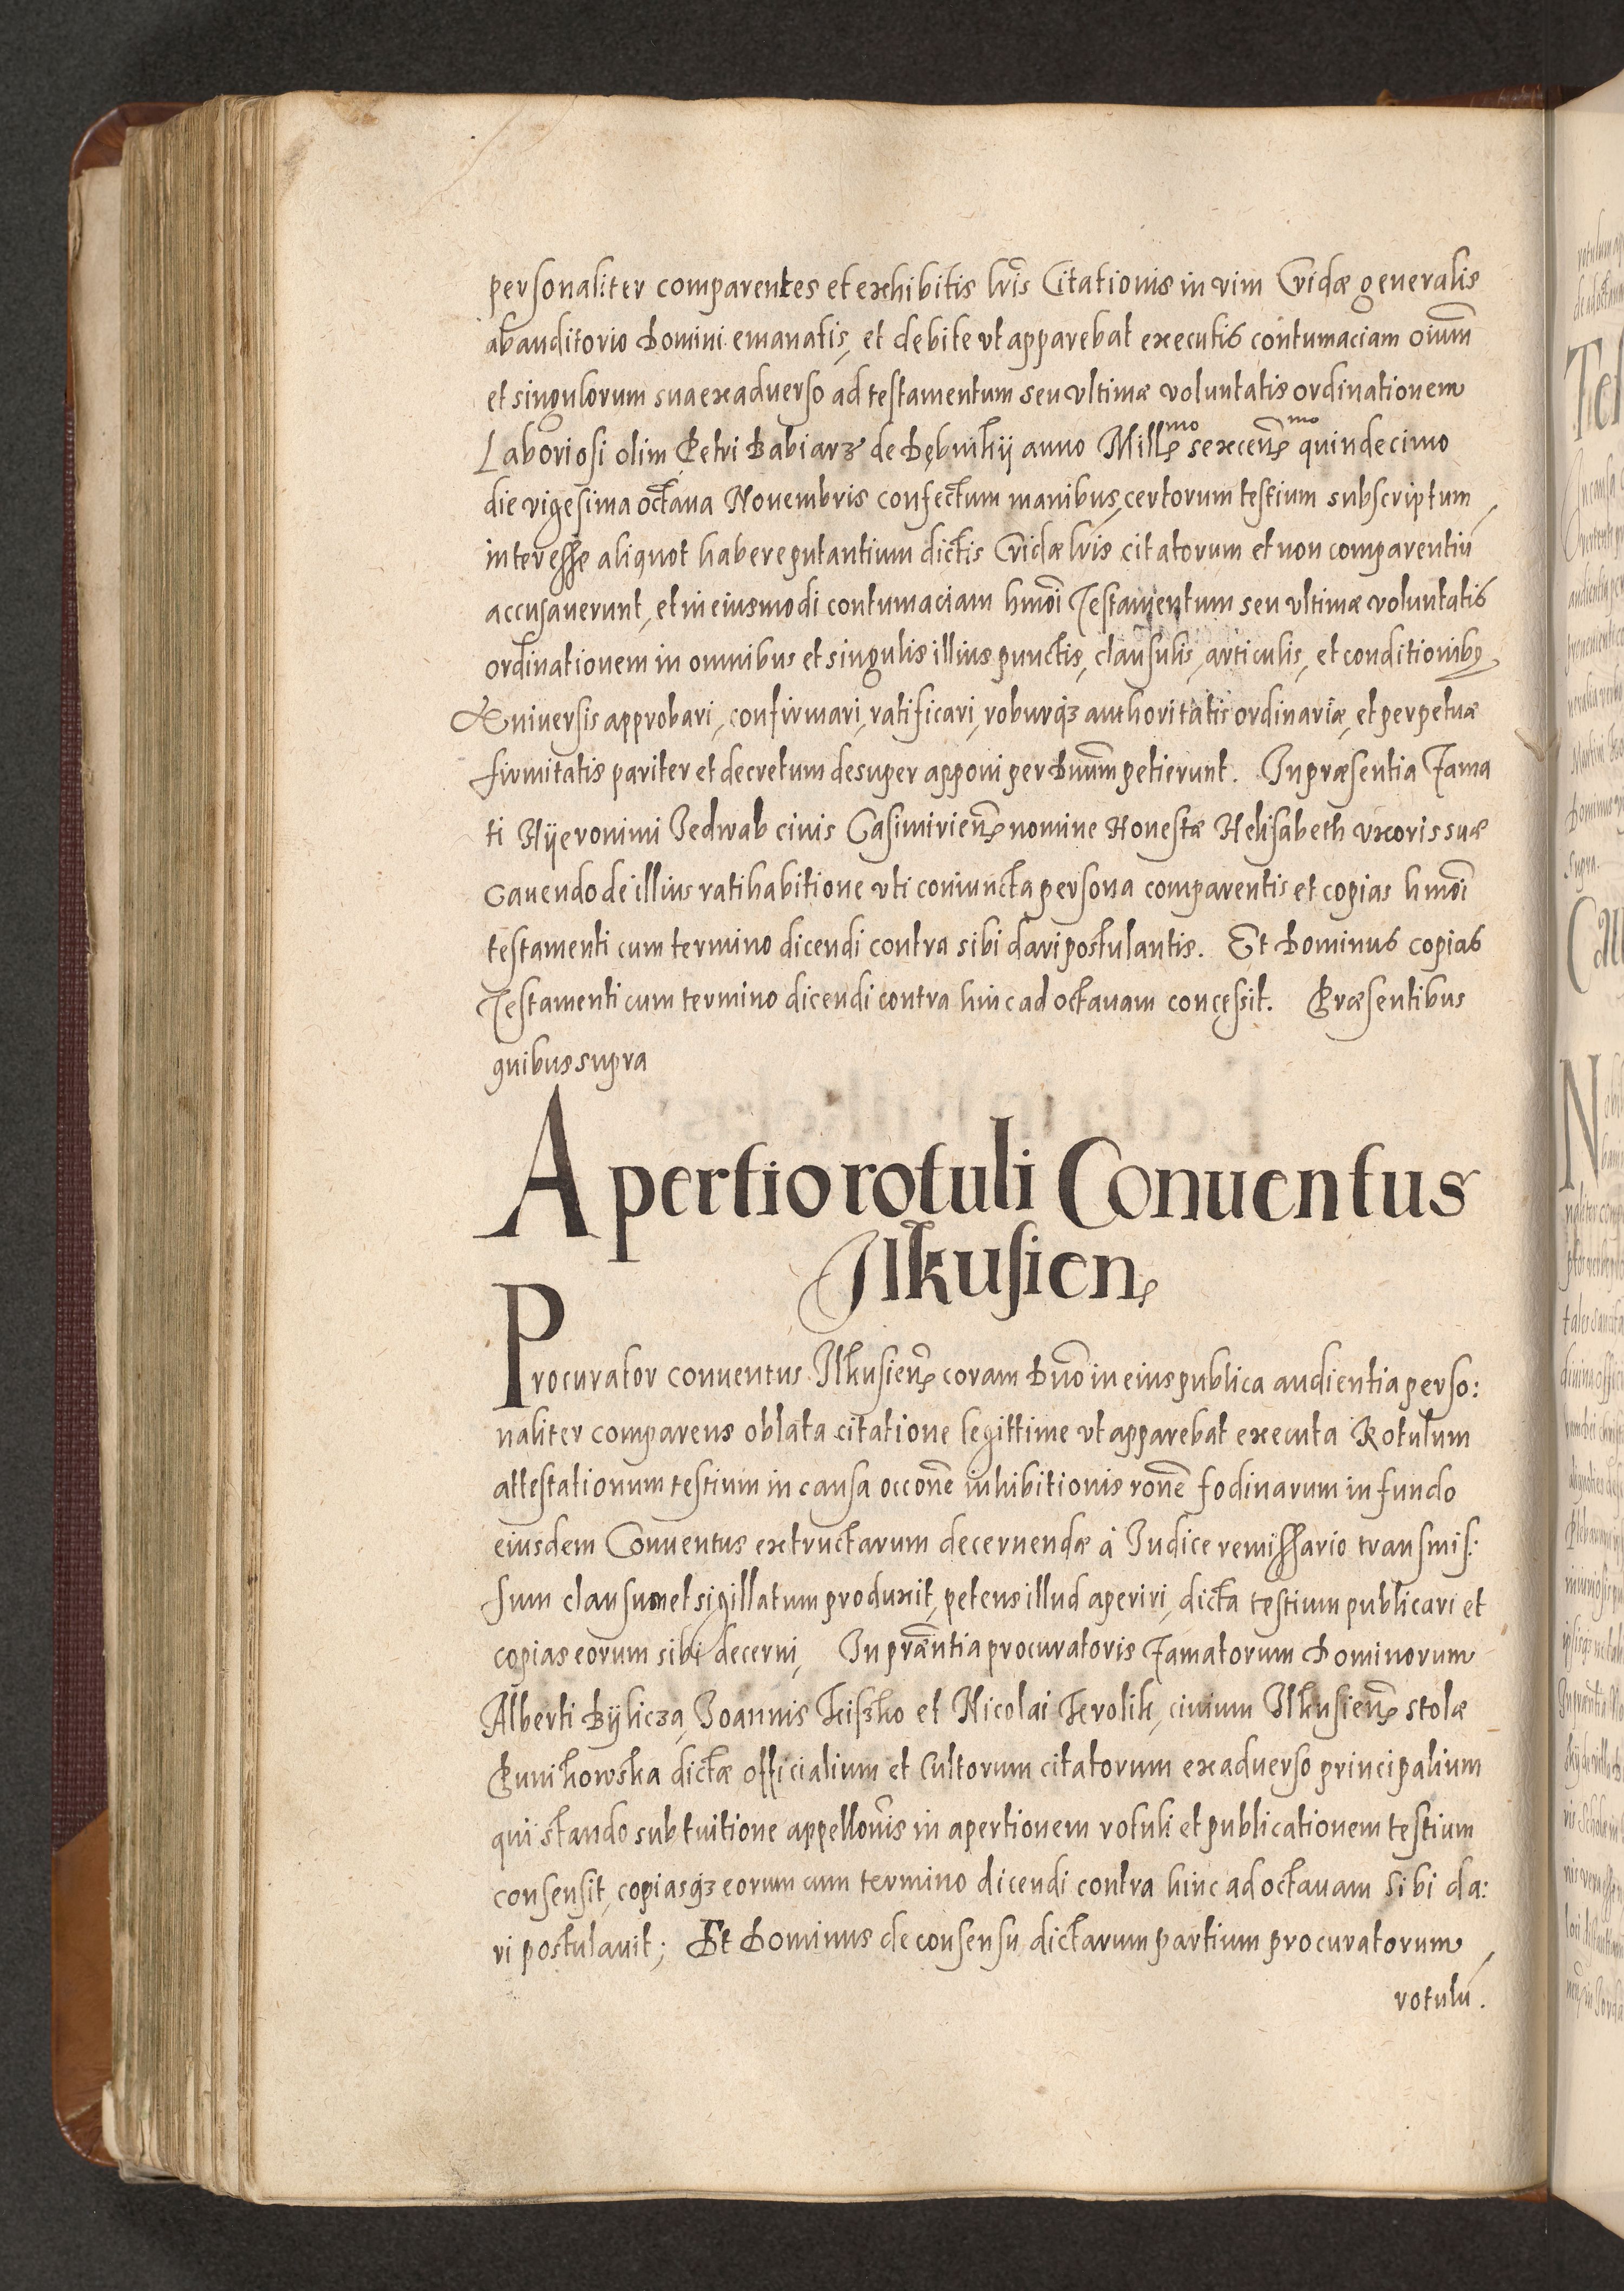 personaliter comparentes et exhibitis lr̃is Citationis in vim Cridæ generalis
ab auditorio Domini emanatis, et debite vt apparebat executis contumaciam oium̃
et singulorum sua ex aduerso ad testamentum seu vltimæ voluntatis ordinationem
Laboriosi olim Petri Babiarz de Dębnikij anno Mill̃mo sexceñmo quindecimo
die vigesima octaua Nouembris confectum manibus, certorum testium subscriptum,
interesse aliquot habere putantium dictis Cridæ lr̃is citatorum et non comparentiū
accusauerunt, et in eiusmodi contumaciam hmõi Testamentum seu vltimæ voluntatis
ordinationem in omnibus et singulis illius punctis, clausulis, articulis, et conditionibq
Vniuersis approbari, confirmari, ratificari, roburq₃ authoritatis ordinariæ, et perpetuæ
firmitatis pariter et decretum desuper apponi per Dnum̃ petierunt. In præsentia Fama
ti Hyeronimi Jedwab ciuis Casimirieñ nomine Honestæ Helisabeth vxoris suæ
Cauendo de illius ratihabitione vti coniuncta persona comparentis et copias hmõi
testamenti cum termino dicendi contra sibi dari postulantis. Et Dominus copias
Testamenti cum termino dicendi contra hinc ad octauam concessit. Præsentibus
quibus supra
Apertio rotuli Conuentus
Ilkusien
Procurator conuentus Ilkusieñ coram Dnõ in eius publica audientia perso:
naliter comparens oblata citatione legittime vt apparebat executa Rotulum
attestationum testium in causa occonẽ inhibitionis ronẽ fodinarum in fundo
eiusdem Conuentus extructarum decernendæ à Iudice remissario transmis:
sum clausum et sigillatum produxit, petens illud aperiri, dicta testium publicari et
copias eorum sibi decerni, In præñtia procuratoris Famatorum Dominorum
Alberti Bylicza, Joannis Kiszko et Nicolai Krolik, ciuium Ilkusieñ stolæ
Punikowska dictæ officialium et Cultorum citatorum ex aduerso principalium
qui stando sub tuitione appellonĩs in apertionem rotuli et publicationem testium
consensit, copiasq₃ eorum cum termino dicendi contra hinc ad octauam sibi da:
ri postulauit; Et Dominus de consensu dictarum partium procuratorum
rotulū.